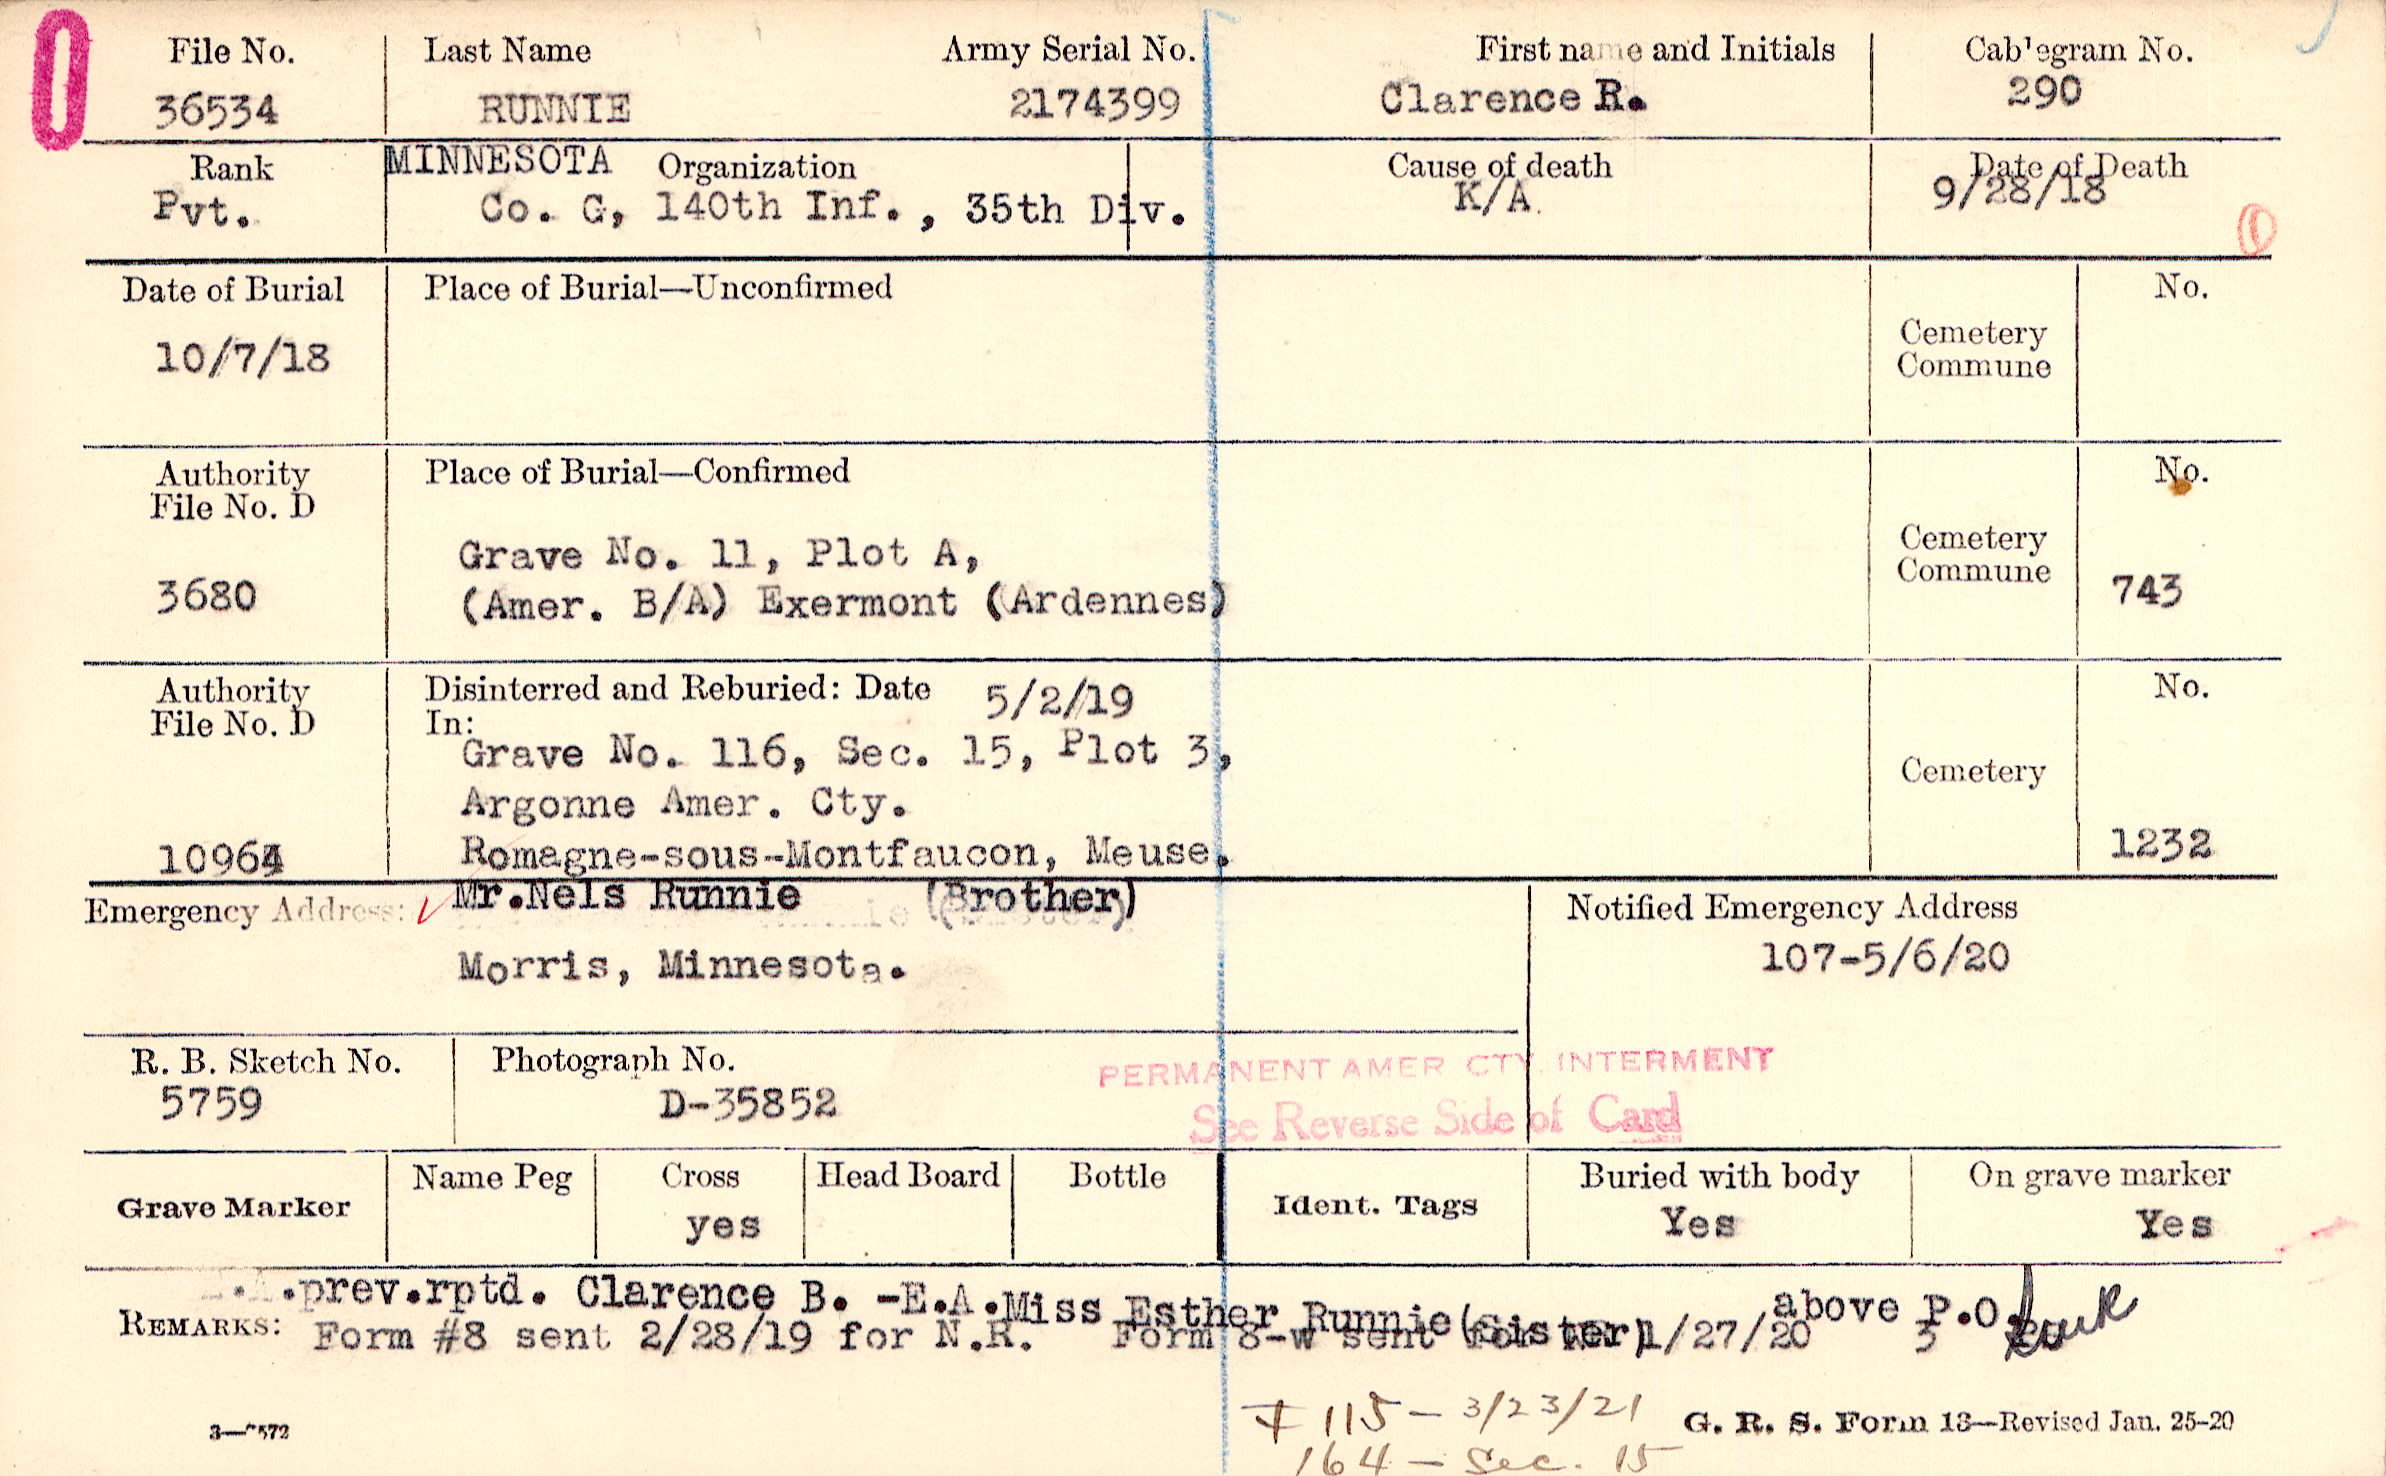 File No. Last Name Army Serial No. First name and Initials Cablegram No.
36534 RUNNIE 2174399 Clarence R. 290
Rank MINNESOTA Organization Cause of death Date of Death
Pvt. Co. G, 140th Inf., 35th Div. K/A. 9/28/18
Date of Burial Place of Burial—Unconfirmed No.
10/7/18
Cemetery
Commune
Authority Place of Burial—Confirmed No.
File No. D
Grave No. 11, Plot A,
Cemetery
Commune
3680 (Amer. B/A) Exermont (Ardennes) 743
Authority Disinterred and Reburied: Date 5/2/19 No.
File No. D In:
Grave No. 116, Sec. 15, Plot 3,
Cemetery
Argonne Amer. Cty.
10964 Romagne-sous-Montfaucon, Meuse. 1232
Emergency Address: Mr.Nels Runnie (Brother) Notified Emergency Address
Morris, Minnesota. 107-5/6/20
R. B. Sketch No. Photograph No.
5759 D-35852
PERMANENT AMER CTY. INTERMENT
See Reverse Side of Card
Grave Marker Name Peg Cross Head Board Bottle Ident. Tags Buried with body On grave marker
yes Yes Yes
prev.rptd. Clarence B. -E.A.Miss Esther Runnie(Sister) above P.O.
REMARKS: Form #8 sent 2/28/19 for N.R. Form 8-w sent for 1/27/20 3
115 - 3/23/21
164 - Sec. 15
G. R. S. Form 13—Revised Jan. 25-20